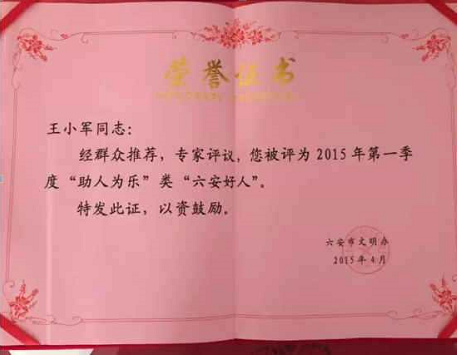 荣誉证书
王小军同志：
经群众推荐，专家评议，您被评为2015年第一季
度“助人为乐”类“六安好人”。
特发此证，以资鼓励。
六安市文明办
2015年4月